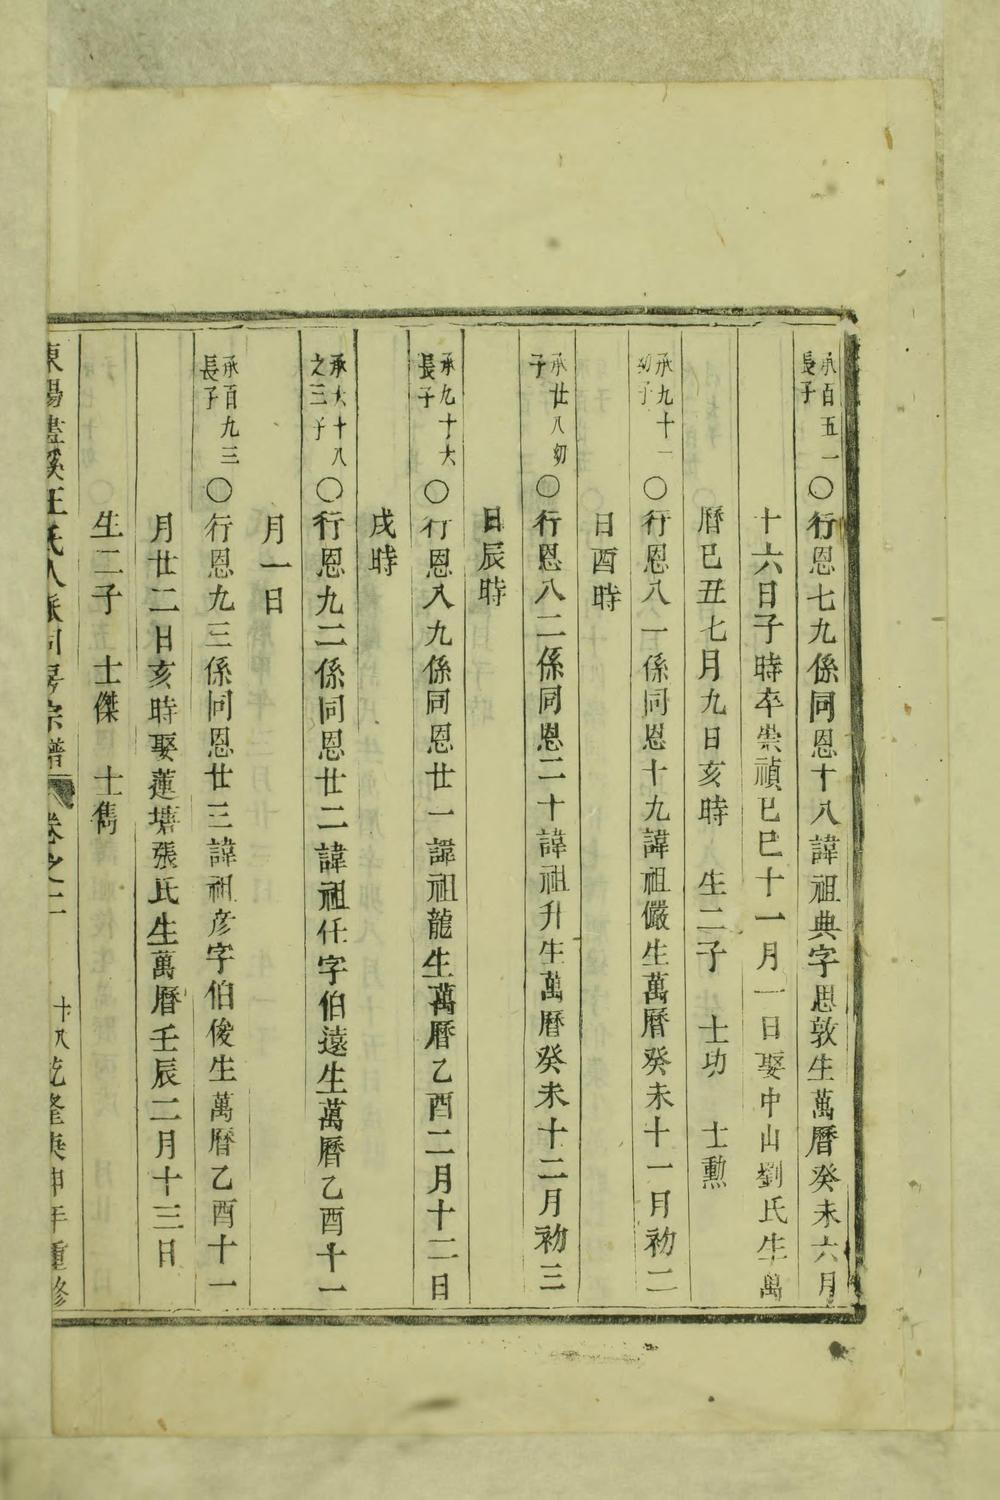 承百五一
長子
○行恩七九係同恩十八諱祖典字思敦生萬曆癸未六月
十六日子時卒崇禎已巳十一月一日娶中山劉氏生萬
曆巳丑七月九日亥時 生二子 士功 士勲
承九十一
幼子
○行恩八一係同恩十九諱祖儼生萬曆癸未十一月初二
日酉時
承廿八幼
子
○行恩八二係同恩二十諱祖升生萬曆癸未十二月初三
日辰時
承九十六
長子
○行恩八九係同恩廿一諱祖龍生萬曆乙酉二月十二日
戌時
承六十八
之三子
○行恩九二係同恩廿二諱祖任字伯遠生萬曆乙酉十一
月一日
承百九三
長子
○行恩九三係同恩廿三諱祖彦字伯俊生萬曆乙酉十一
月廿二日亥時娶蓮塘張氏生萬曆壬辰二月十三日
生二子 士傑 士雋
東陽畫溪王氏八派同房宗譜 卷之二 十八 乾隆庚申年重修